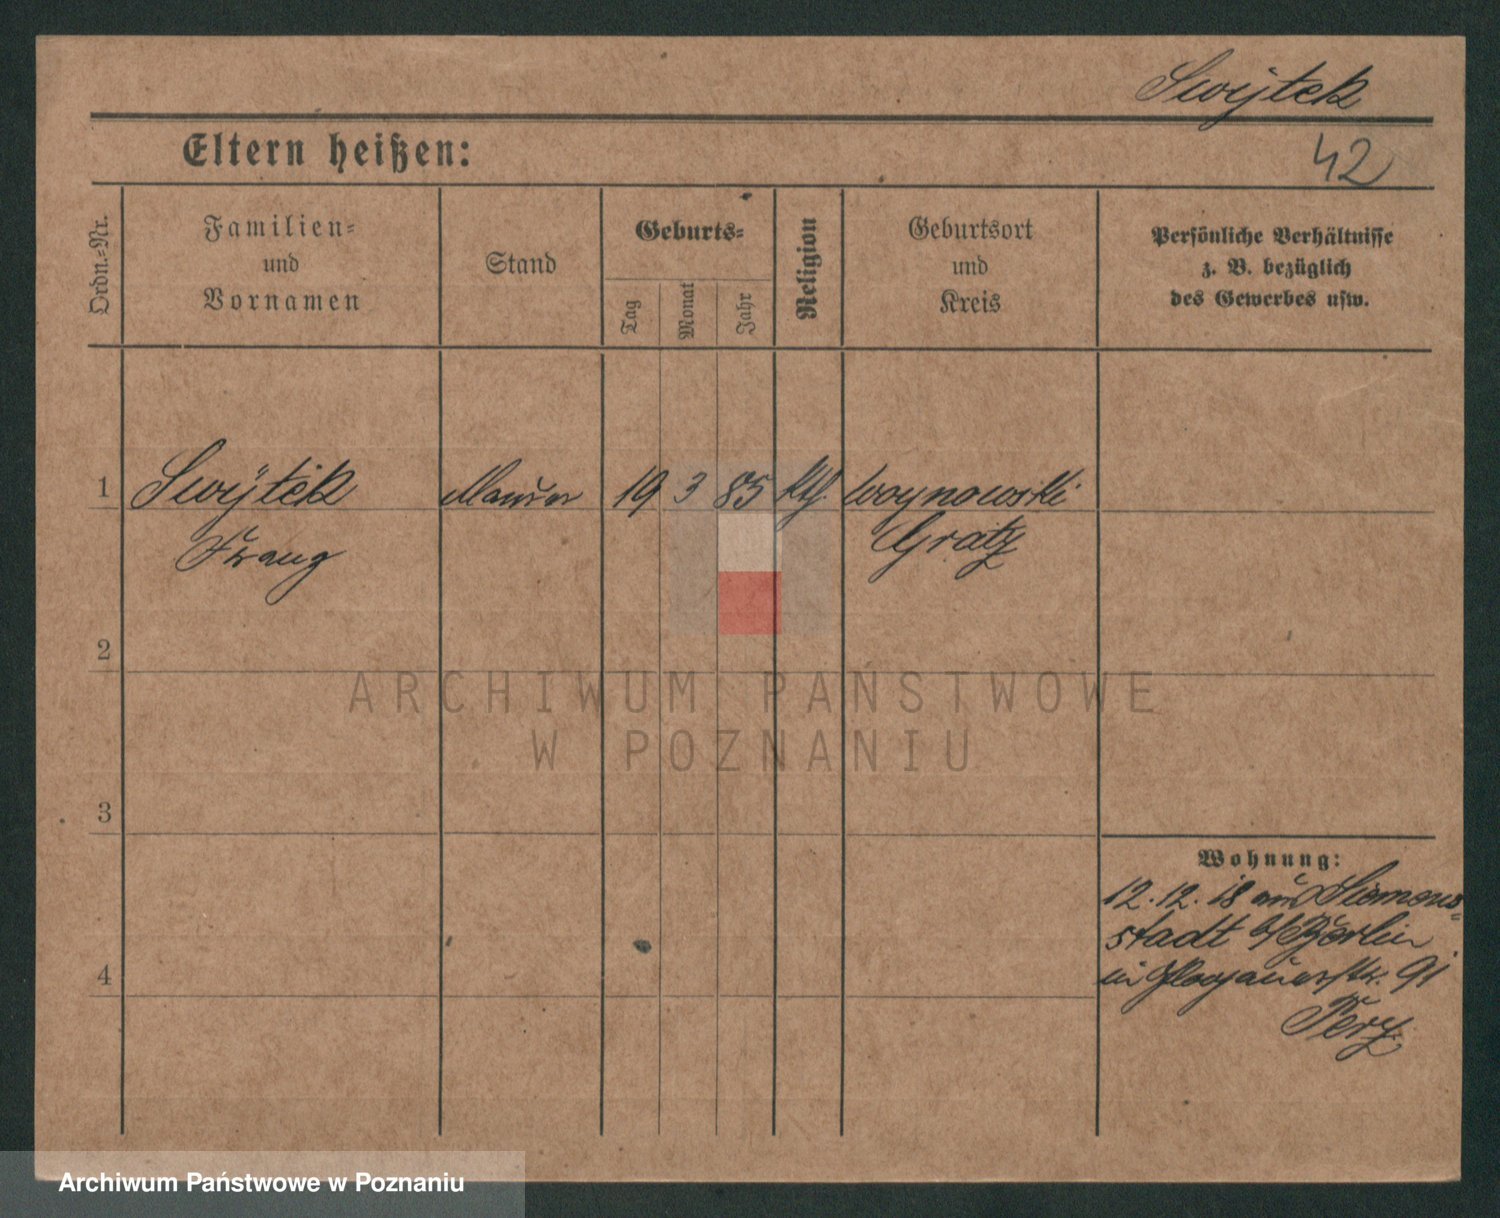 Swijtek
Eltern heißen:
42
Ordn.-Nr.
Familien-
und
Vornamen
Stand
Geburts-
Tag
Monat
Jahr
Religion
Geburtsort
und
Kreis
Persönliche Verhältnisse
z. B. bezüglich
des Gewerbes usw.
1 Swijtek Maurer 19 3 85 kth. Woynowski
Franz Gratz
2
ARCHIWUM PAŃSTWOWE
W POZNANIU
3
Wohnung:
12.12.18 aus Siemens-
stadt b/Berlin
in Glogauerstr. 91
4
Archiwum Państwowe w Poznaniu